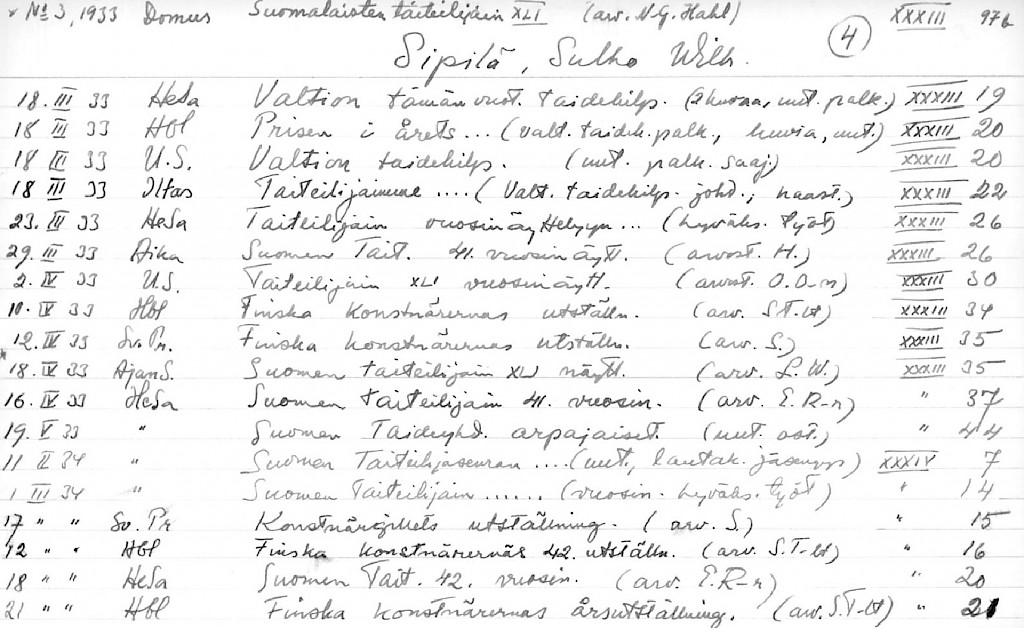 № 3, 1933 Domus Suomalaisten taiteilijain XLI (arv. N.G. Hahl) XXXIII 97b
4
Sipilä, Sulho Wilh.
18. III 33 HeSa Valtion tämän vuot. taidekilp. (2 kuvaa, mit. palk.) XXXIII 19
18 III 33 Hbl Prisen i årets ... (valt. taidek. palk., kuvia, mit.) XXXIII 20
18 III 33 U.S. Valtion taidekilp. (mit. palk. saaj.) XXXIII 20
18 III 33 Iltas Taiteilijaimme .... (Valt. taidekilp. joht., haast.) XXXIII 22
23. III 33 HeSa Taiteilijain vuosinäyttelyyn ... (hyväks. työt) XXXIII 26
29. III 33 Aika Suomen Tait. 41. vuosinäytt. (arvost. H.) XXXIII 26
2. IV 33 U.S. Taiteilijain XLI vuosinäytt. (arvost. O.O-n) XXXIII 30
10. IV 33 Hbl Finska konstnärernas utställn. (arv. S.T-lt) XXXIII 34
12. IV 33 Sv.Pr. Finska konstnärernas utställn. (arv. S.) XXXIII 35
18. IV 33 AjanS. Suomen taiteilijain XLI näytt. (arv. L.W.) XXXIII 35
16. IV 33 HeSa Suomen taiteilijain 41. vuosin. (arv. E.R-r) " 37
19. V 33 " Suomen Taideyhd. arpajaiset. (mit. ost.) " 44
11 II 34 " Suomen Taiteilijaseuran .... (mit., lautak. jäsenyys) XXXIV 7
1 III 34 " Suomen Taiteilijain ...... (vuosin. hyväks. työt) " 14
17 " " Sv.Pr Konstnärsgillets utställning. (arv. S.) " 15
12 " " Hbl Finska konstnärernas 42. utställn. (arv. S.T-lt) " 16
18 " " HeSa Suomen Tait. 42. vuosin. (arv. E.R-r) " 20
21 " " Hbl Finska konstnärernas årsutställning. (arv. S.T-lt) " 21